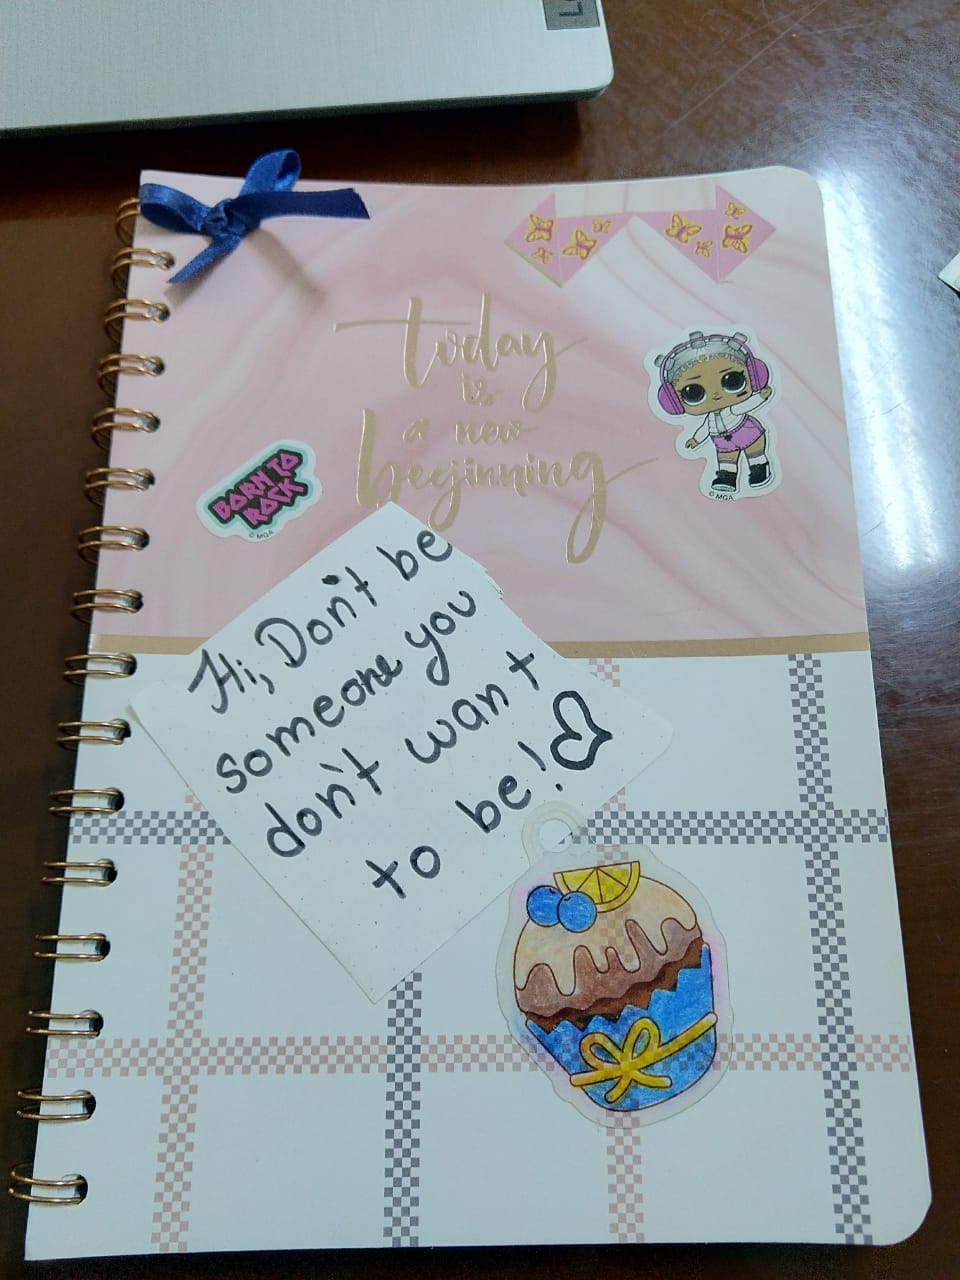 today
is
a new
beginning
BORN TO
ROCK
© MGA
© MGA
Hi, Don't be
someone you
don't want
to be!